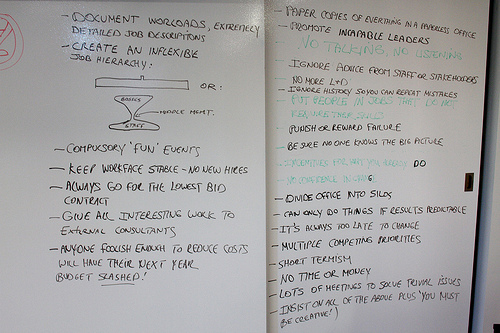 - DOCUMENT WORKLOADS, EXTREMELY
DETAILED JOB DESCRIPTIONS
- CREATE AN INFLEXIBLE
JOB HIERARCHY:
OR:
BOSSES
MIDDLE MGMT.
STAFF
- COMPULSORY 'FUN' EVENTS
- KEEP WORKFACE STABLE - NO NEW HIRES
- ALWAYS GO FOR THE LOWEST BID
CONTRACT
- GIVE ALL INTERESTING WORK TO
EXTERNAL CONSULTANTS
- ANYONE FOOLISH ENOUGH TO REDUCE COSTS
WILL HAVE THEIR NEXT YEAR
BUDGET SLASHED!
- PAPER COPIES OF EVERYTHING IN A PAPERLESS OFFICE
- PROMOTE INCAPABLE LEADERS
NO TALKING, NO LISTENING
- IGNORE ADVICE FROM STAFF OR STAKEHOLDERS
- NO MORE L+D
- IGNORE HISTORY SO YOU CAN REPEAT MISTAKES
- PUT PEOPLE IN JOBS THAT DO NOT
REQUIRE THEIR SKILLS
- PUNISH OR REWARD FAILURE
- BE SURE NO ONE KNOWS THE BIG PICTURE
- INCENTIVES FOR WHAT YOU ALREADY DO
- NO
- DIVIDE OFFICE INTO SILOS
- CAN ONLY DO THINGS IF RESULTS PREDICTABLE
- IT'S ALWAYS TOO LATE TO CHANGE
- MULTIPLE COMPETING PRIORITIES
- SHORT TERMISM
- NO TIME OR MONEY
- LOTS OF MEETINGS TO SOLVE TRIVIAL ISSUES
- INSIST ON ALL OF THE ABOVE PLUS 'YOU MUST
BE CREATIVE!'